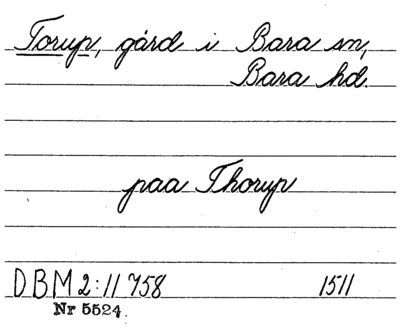 Torup, gård i Bara sn,
Bara hd.
paa Thorup
DBM 2:11 758 1511
Nr 5524.